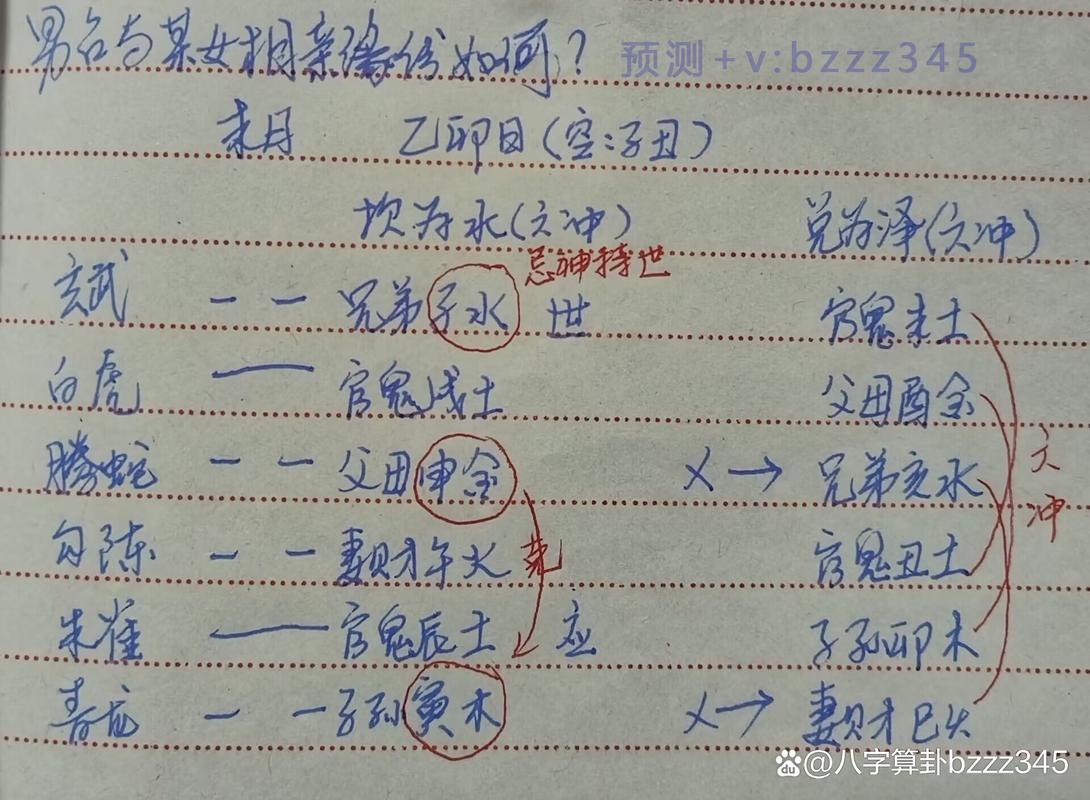 男占与某女相亲缘份如何？ 预测+v:bzzz345
未月 乙卯日（空：子丑）
坎为水（六冲） 兑为泽（六冲）
忌神持世
玄武 兄弟子水 世 官鬼未土
白虎 官鬼戌土 父母酉金
腾蛇 父母申金 X→ 兄弟亥水 六冲
勾陈 妻财午火 克 官鬼丑土
朱雀 官鬼辰土 应 子孙卯木
青龙 子孙寅木 X→ 妻财巳火
@八字算卦bzzz345